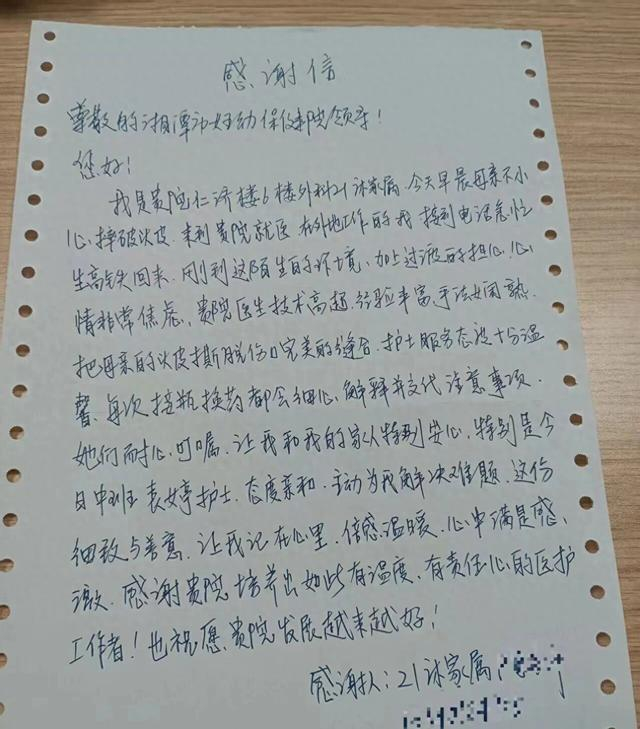 感谢信
尊敬的湘潭市妇幼保健院领导！
您好！
我是贵院仁济楼6楼外科21床家属.今天早晨母亲不小
心摔破头皮.来到贵院就医.在外地工作的我接到电话急忙
坐高铁回来.刚到这陌生的环境、加上过激的担心.心
情非常焦虑.贵院医生技术高超.经验丰富.手法娴熟.
把母亲的头皮撕脱伤口完美的缝合.护士服务态度十分温
馨.每次接瓶换药都会细心解释并交代注意事项.
她们耐心叮嘱.让我和我的家人特别安心.特别是今
日中班袁婷护士.态度亲和.主动为我解决难题.这份
细致与善意.让我记在心里.倍感温暖.心中满是感
激.感谢贵院培养出如此有温度、有责任心的医护
工作者！也祝愿贵院发展越来越好！
感谢人：21床家属